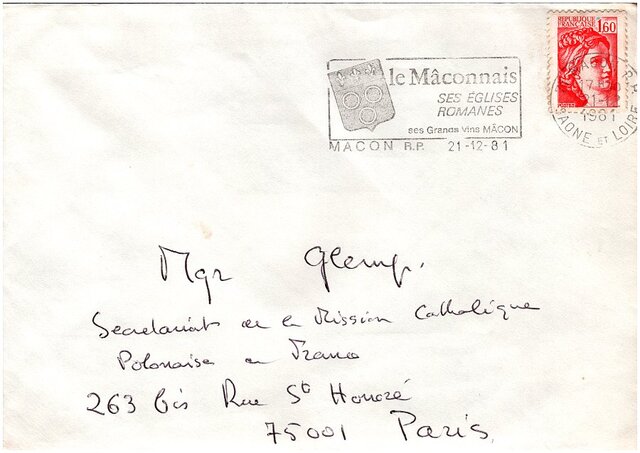 REPUBLIQUE
FRANÇAISE
1,60
le Mâconnais
SES ÉGLISES
ROMANES
ses Grands vins MÂCON
MACON R.P. 21-12-81
1981
SAONE ET LOIRE
Mgr Glemp.
Secretariat de la Mission Catholique
Polonaise en France
263 bis Rue St Honoré
75001 Paris